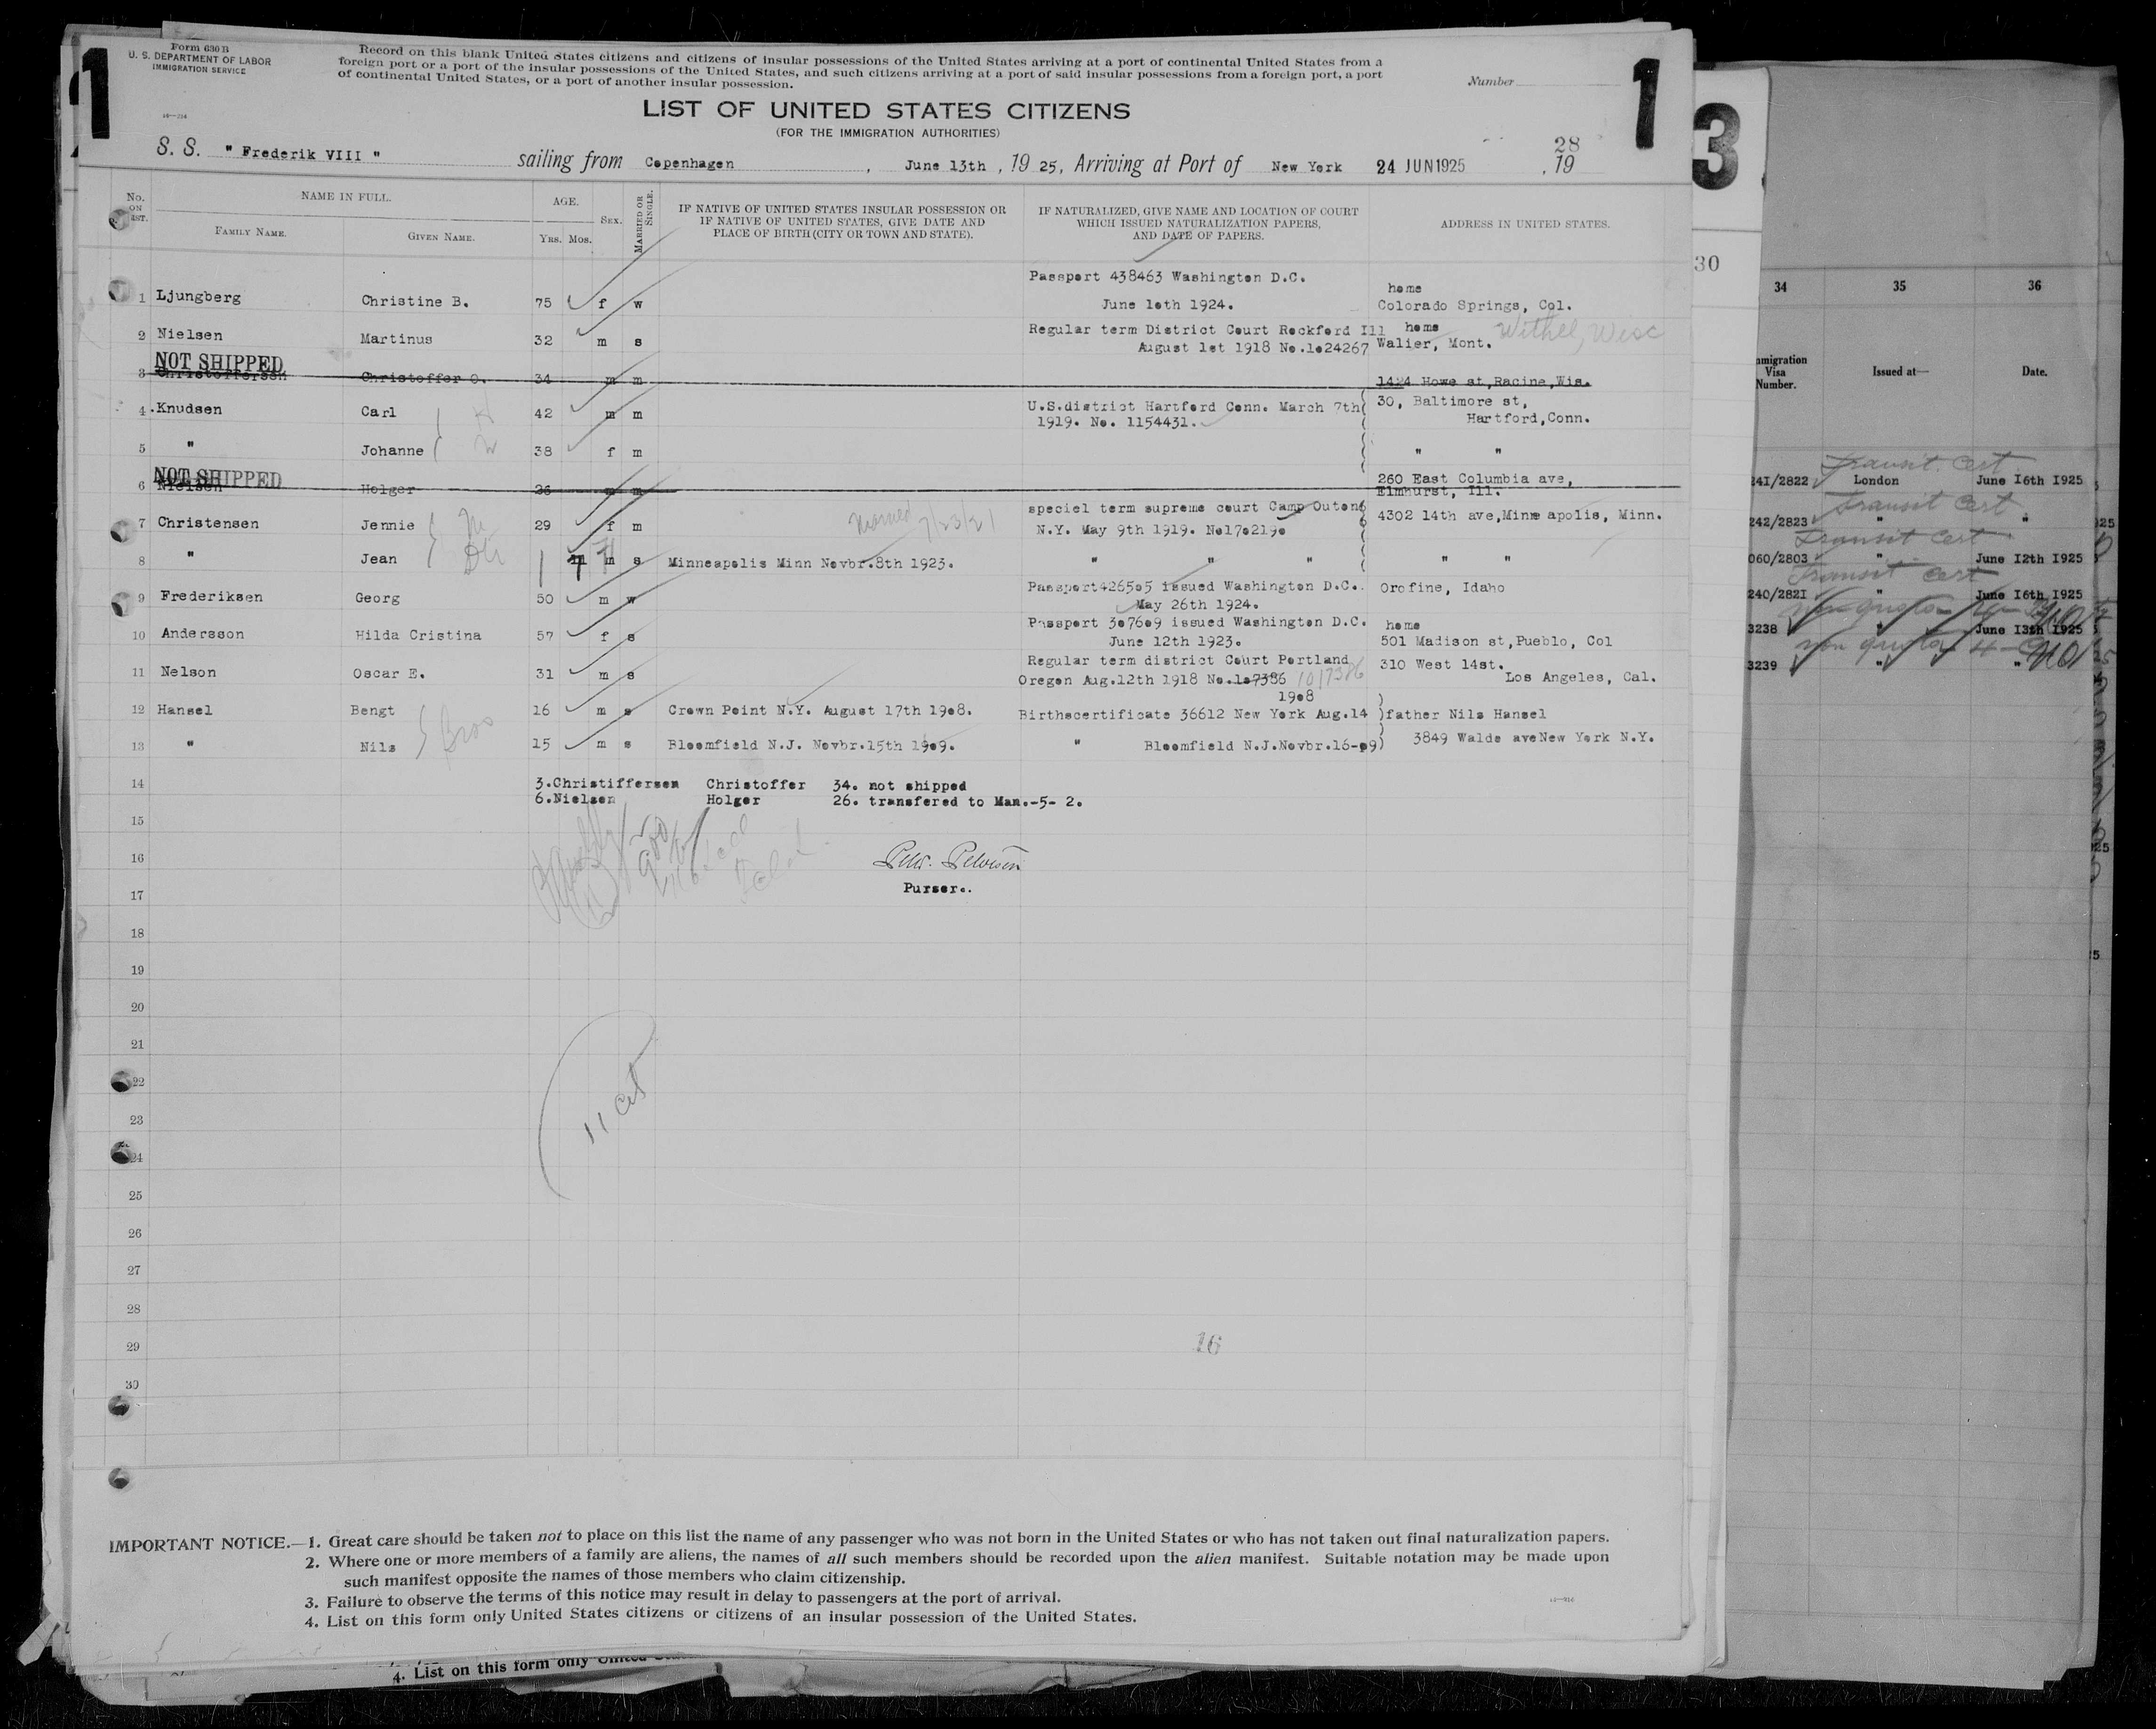 1
Form 630 B
U. S. DEPARTMENT OF LABOR
IMMIGRATION SERVICE
Record on this blank United States citizens and citizens of insular possessions of the United States arriving at a port of continental United States from a
foreign port or a port of the insular possessions of the United States, and such citizens arriving at a port of said insular possessions from a foreign port, a port
of continental United States, or a port of another insular possession.
Number
1
LIST OF UNITED STATES CITIZENS
(FOR THE IMMIGRATION AUTHORITIES)
28
S. S. " Frederik VIII " sailing from Copenhagen , June 13th , 19 25, Arriving at Port of New York 24 JUN 1925 , 19
No. ON LIST. NAME IN FULL. AGE. SEX. MARRIED OR SINGLE. IF NATIVE OF UNITED STATES INSULAR POSSESSION OR IF NATIVE OF UNITED STATES, GIVE DATE AND PLACE OF BIRTH (CITY OR TOWN AND STATE). IF NATURALIZED, GIVE NAME AND LOCATION OF COURT WHICH ISSUED NATURALIZATION PAPERS, AND DATE OF PAPERS. ADDRESS IN UNITED STATES.
FAMILY NAME. GIVEN NAME. YRS. MOS.
Passport 438463 Washington D.C.
home
1 Ljungberg Christine B. 75 f w June 1oth 1924. Colorado Springs, Col.
Regular term District Court Rockford Ill home Withee, Wisc
2 Nielsen Martinus 32 m s August 1st 1918 No.1o24267 Walier, Mont.
NOT SHIPPED
3 Christoffersen Christoffer O. 34 m m 1424 Howe st,Racine,Wis.
4 Knudsen Carl 42 m m U.S.district Hartford Conn. March 7th 30, Baltimore st,
1919. No. 1154431. Hartford,Conn.
5 " Johanne 38 f m " "
NOT SHIPPED 260 East Columbia ave,
6 Nielsen Holger 26 m m Elmhurst, Ill.
speciel term supreme court Camp
7 Christensen Jennie 29 f m married 7/23/21 N.Y. May 9th 1919. No17o219o 4302 14th ave,Minne apolis, Minn.
8 " Jean 1 7 m s Minneapolis Minn Novbr.8th 1923. " " " " "
Passport426505 issued Washington D.C. Orofine, Idaho
9 Frederiksen Georg 50 m w May 26th 1924.
Passport 3o76o9 issued Washington D.C. home
10 Andersson Hilda Cristina 57 f s June 12th 1923. 501 Madison st,Pueblo, Col
Regular term district Court Portland 310 West 14st.
11 Nelson Oscar E. 31 m s Oregon Aug.12th 1918 No.1o7386 1017386 Los Angeles, Cal.
19o8
12 Hansel Bengt 16 m s Crown Point N.Y. August 17th 19o8. Birthscertificate 36612 New York Aug.14 )father Nils Hansel
Bros
13 " Nils 15 m s Bloomfield N.J. Novbr.15th 19o9. " Bloomfield N.J.Novbr.16-o9) 3849 Walde aveNew York N.Y.
14 3.Christiffersen Christoffer 34. not shipped
6.Nielsen Holger 26. transfered to Man.-5- 2.
15
16
17 Purser.
18
19
20
21
22
23
11 cit
24
25
26
27
28
29 16
30
IMPORTANT NOTICE.—1. Great care should be taken not to place on this list the name of any passenger who was not born in the United States or who has not taken out final naturalization papers.
2. Where one or more members of a family are aliens, the names of all such members should be recorded upon the alien manifest. Suitable notation may be made upon
such manifest opposite the names of those members who claim citizenship.
3. Failure to observe the terms of this notice may result in delay to passengers at the port of arrival.
4. List on this form only United States citizens or citizens of an insular possession of the United States.
4. List on this form only United
3
30
34 35 36
Visa Number. Issued at— Date.
Transit Cert
24I/2822 London June I6th I925
Transit Cert
242/2823 " "
Transit Cert
060/2803 " June I2th I925
Transit Cert
240/282I " June I6th I925
non quota
3238 " June I3th I925
non quota
3239 " "